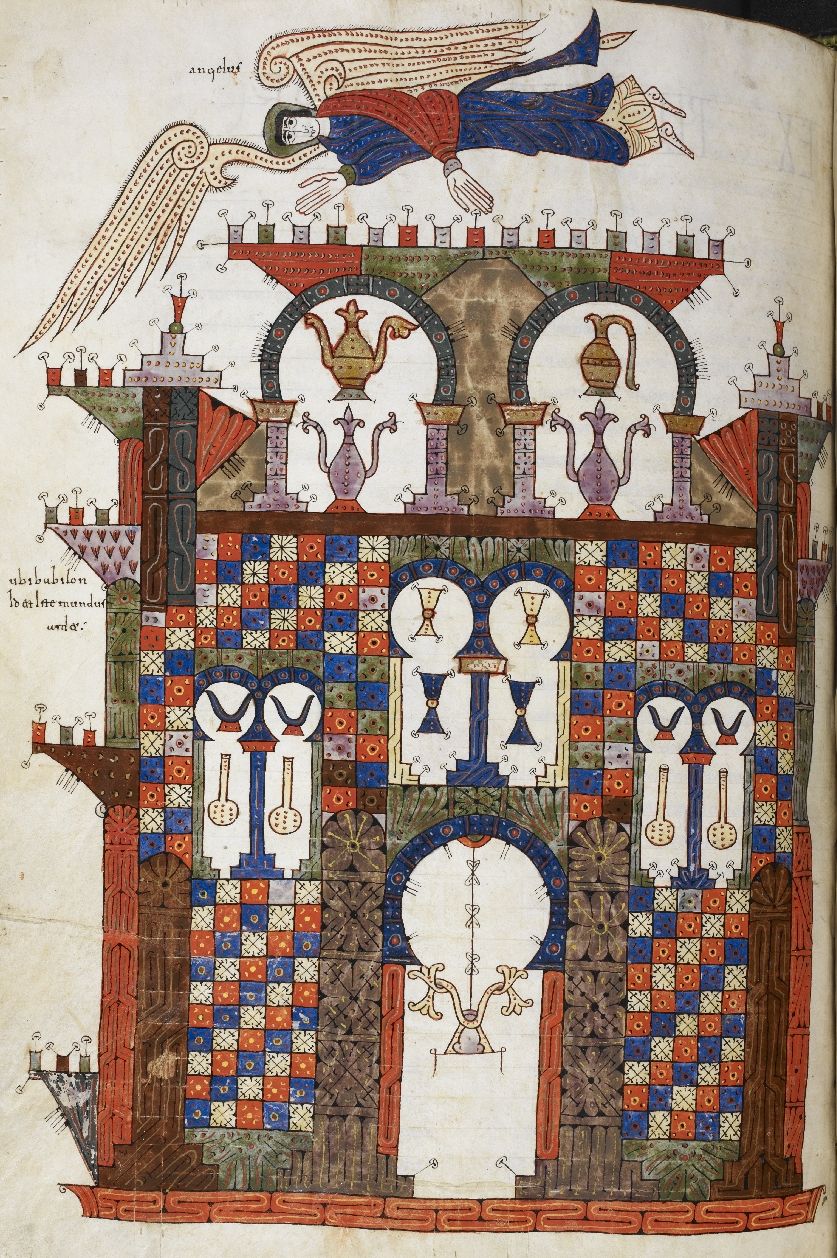 angelus
ubi babilon
id est iste mundus
ardet